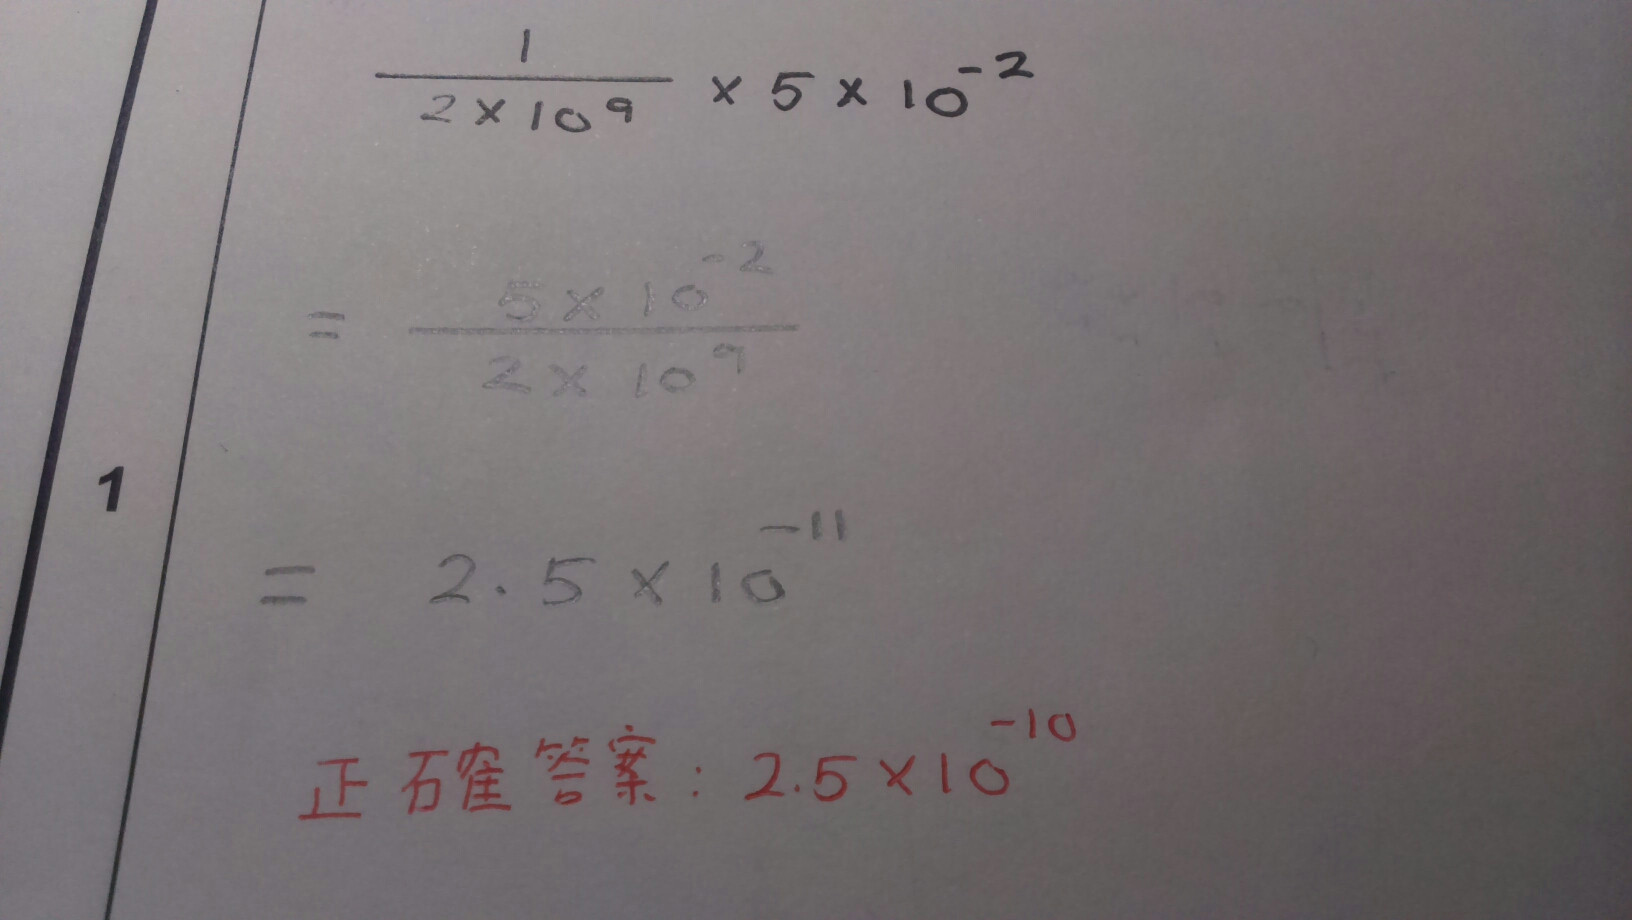 1
2 × 10⁹ × 5 × 10⁻²
= 5 × 10⁻²
2 × 10⁹
1
= 2.5 × 10⁻¹¹
正確答案: 2.5 × 10⁻¹⁰